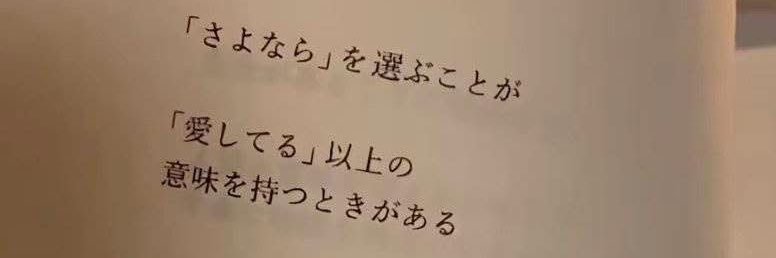 「さよなら」を選ぶことが
「愛してる」以上の
意味を持つときがある